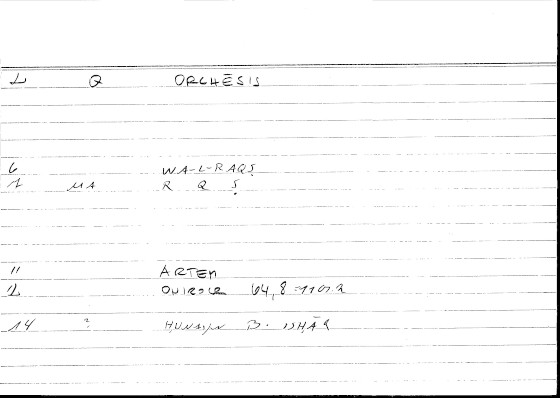 1 Q ORCHĒSIS
6 WA-L-RAQṢ
1 MA R Q Ṣ
11 ARTEM
2 64,8
14 ? HUNAYN B. ISHĀQ